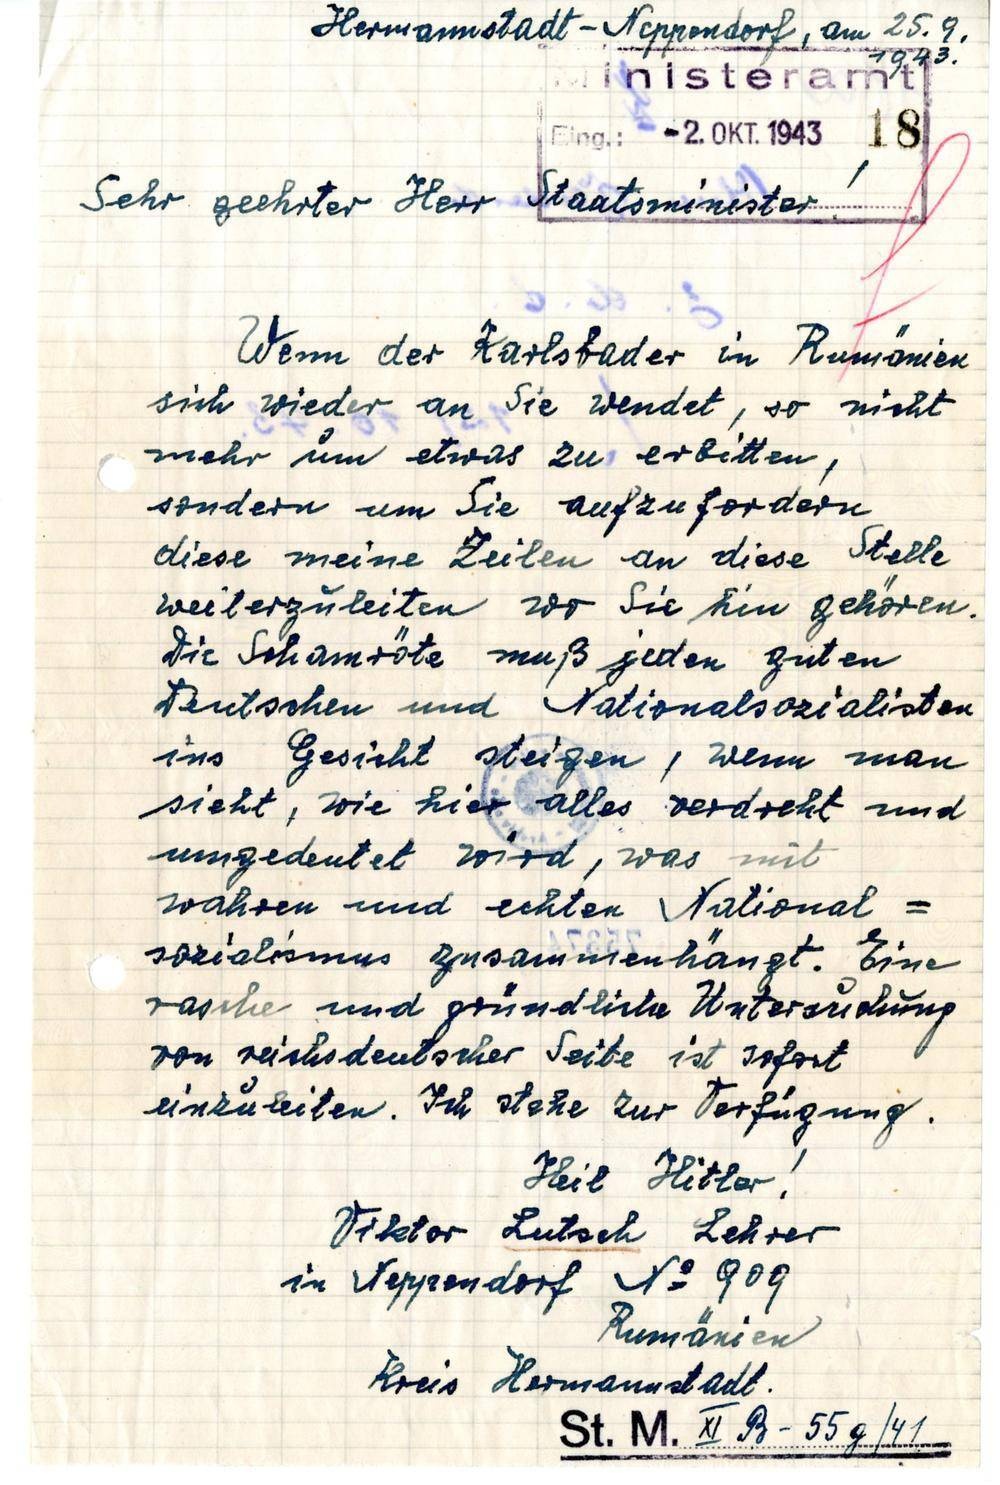 Hermannstadt-Neppendorf, am 25.9.
1943.
inisteramt
Eing.: -2. OKT. 1943 18
Sehr geehrter Herr Staatsminister!
Wenn der Karlsbader in Rumänien
sich wieder an Sie wendet, so nicht
mehr um etwas zu erbitten,
sondern um Sie aufzufordern
diese meine Zeilen an diese Stelle
weiterzuleiten wo Sie hin gehören.
Die Schamröte muß jeden guten
Deutschen und Nationalsozialisten
ins Gesicht steigen, wenn man
sieht, wie hier alles verdreht und
umgedeutet wird, was mit
wahren und echten National=
sozialismus zusammenhängt. Eine
rasche und gründliche Untersuchung
von reichsdeutscher Seite ist sofort
einzuleiten. Ich stehe zur Verfügung.
Heil Hitler!
Viktor Lutsch Lehrer
in Neppendorf No 909
Rumänien
Kreis Hermannstadt.
St. M. XI B - 55 g/41